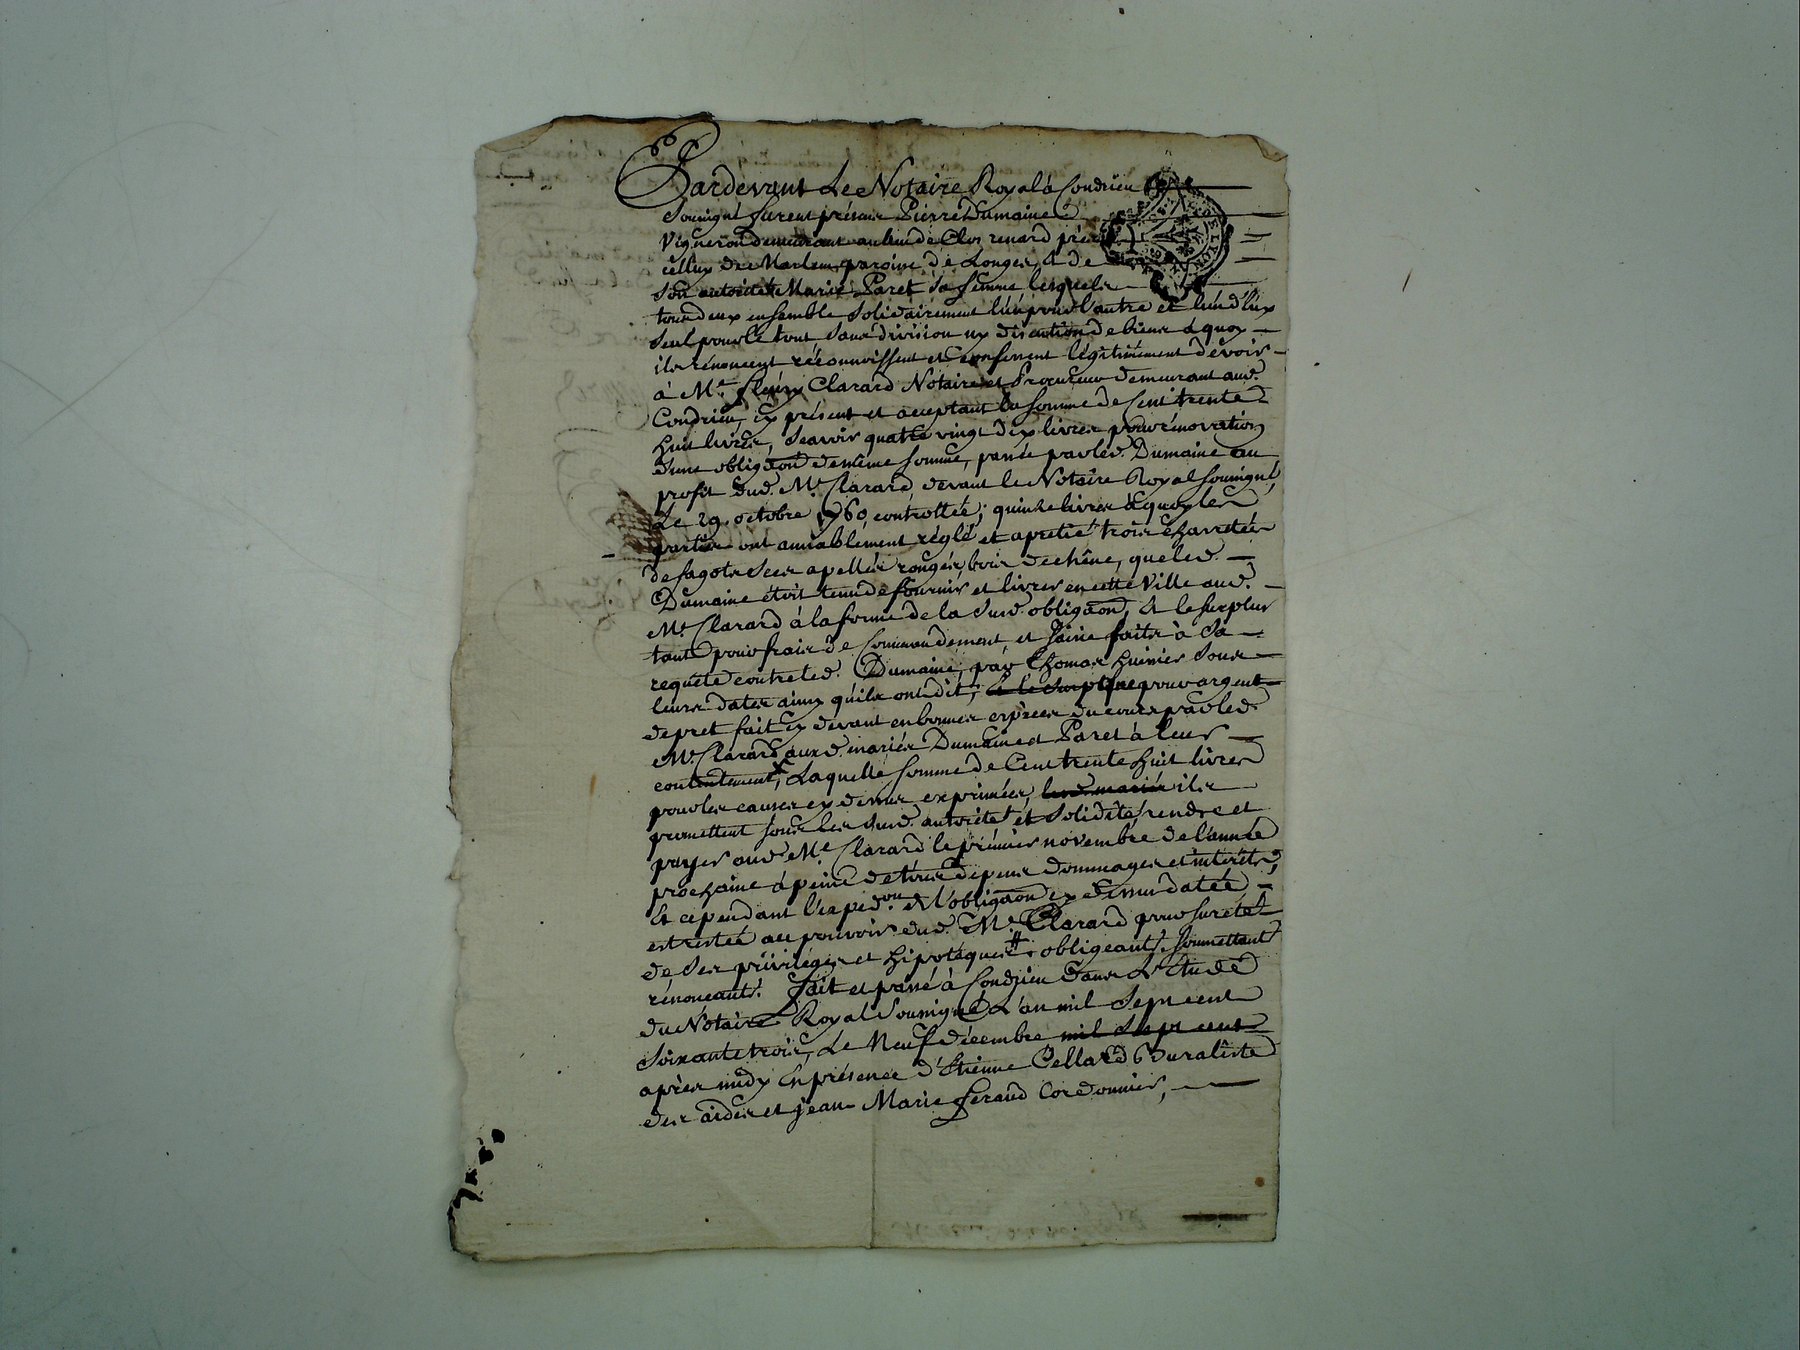 Pardevant Le Notaire Royal à Condrieu
Soussigné furent présens Pierre Dumaine
Vigneron demeurant au lieu de Clos renard près
celluy de Marlem, paroisse de Longes, & de
Son autorité Marie Paret Sa femme lesquels
tous deux ensemble Solidairement l'un pour l'autre et l'un d'Eux
Seul pour le tout Sans division ny discution de biens à quoy
ils rénoncent réconnoissent et Confessent légitimement dévoir
à Me. fleury Clarard Notaire et Procureur demeurant aud.
Condrieu, cy présent et acceptant la somme de Cent trente
huit livres, Scavoir quatre vingt dix livres pour rénovation
d'une obligaõn de même somme, passée par led. Dumaine au
profit dud. Me. Clarard devant le Notaire Royal soussigné,
Le 29. octobre 1760, controllée; quinze livres à quoy les
parties ont amiablement réglé et apretié trois charretées
de fagots Secs apellés rongés, bois de chêne, que led.
Dumaine étoit tenu de fournir et livrer en cette Ville aud.
Me. Clarard à la forme de la Sud. obligaõn, & le surplus
tant pour frais de Commandement et Saisie faits à Sa
requete contre led. Dumaine, par Thomas huissier Sous
leurs dates ainsy qu'ils ont dit, & le surplus pour argent
de pret fait cy devant en bonnes espèces du cours par led.
Me. Clarard aux d. mariés Dumaine et Paret à leur
contentement, Laquelle somme de Cent trente huit livres
pour les causes cy dessus exprimées, lesd. mariés ils
promettent sous les Sud. autorité et Solidité, rendre et
payer aud. Me. Clarard le prémier novembre de l'année
prochaine à peine de tous dépens dommages et intérêts,
Et cependant l'exped.on de l'obligaõn cy dessus datée
est restée au pouvoir dud. Me. Clarard pour sureté
de Ses priviléges et hipotéques # obligeant, soumettant
rénonceant. fait et passé à Condrieu dans L'Etude
du Notaire Royal Soussigné L'an mil Sept cent
soixante trois, Le Neuf décembre mil Sept cent
après midy En présence d'Etienne Cellard Buraliste
des aides et jean-Marie feraud Cordonnier,